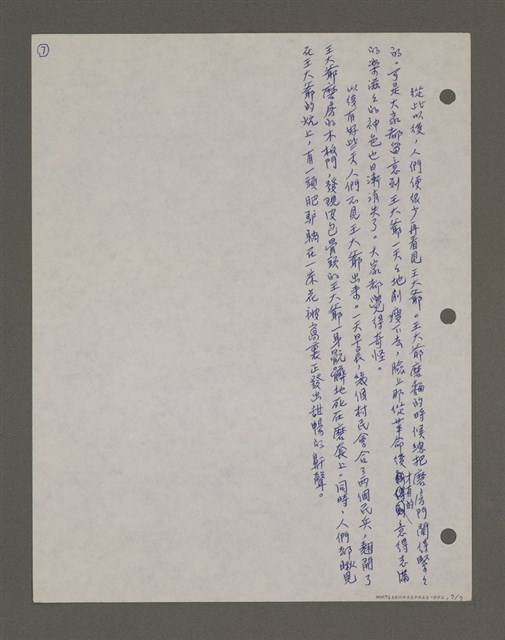 ⑦
從此以後,人們便很少再看見王大爺。王大爺磨麵的時候總把磨房門關得緊々
的。可是大家都留意到王大爺一天々地削瘦下去,臉上那從革命後才有的意得志滿
的樂滋々的神色也日漸消失了。大家都覺得奇怪。
以後有好些天人們不見王大爺出來。一天早晨,幾個村民會合了兩個民兵,翻開了
王大爺磨房的木板門,發現皮包骨頭的王大爺一身骯髒地死在磨盤上。同時,人們却瞅見
在王大爺的炕上,有一頭肥驢躺在一床花被窩裏正發出甜暢的鼾聲。